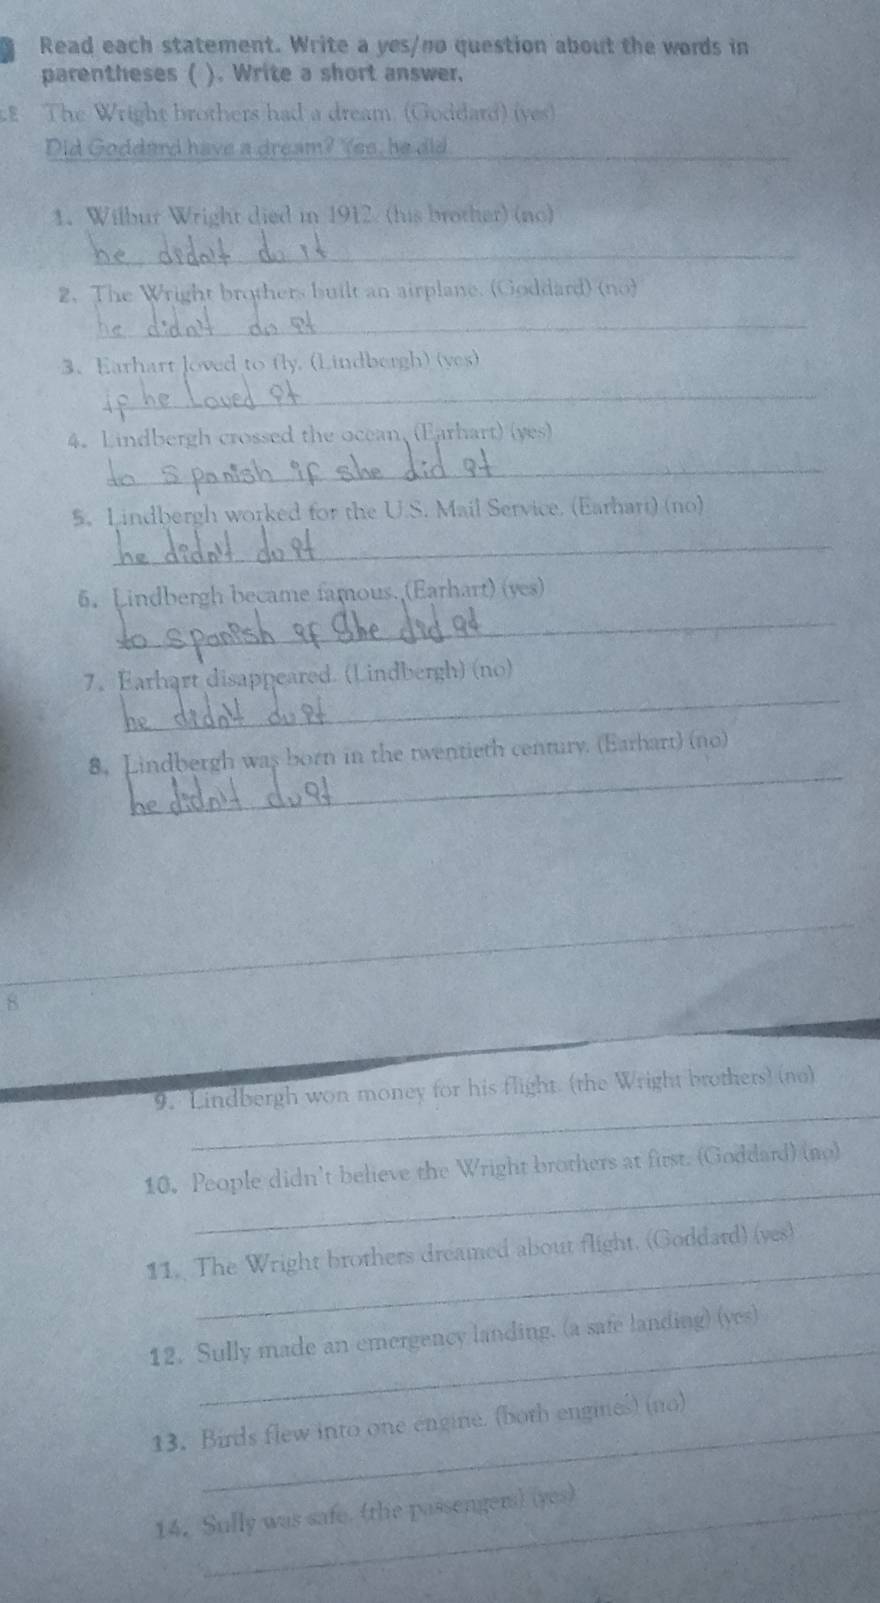 Read each statement. Write a yes/no question about the words in
parentheses ( ). Write a short answer.
The Wright brothers had a dream. (Goddard) (yes)
Did Goddard have a dream? Yes, he did.
1. Wilbur Wright died in 1912. (his brother) (no)
he didn't do it
2. The Wright brothers built an airplane. (Goddard) (no)
he didn't do it
3. Earhart loved to fly. (Lindbergh) (yes)
if he loved it
4. Lindbergh crossed the ocean. (Earhart) (yes)
to spanish if she did it
5. Lindbergh worked for the U.S. Mail Service. (Earhart) (no)
he didn't do it
6. Lindbergh became famous. (Earhart) (yes)
to spanish if she did it
7. Earhart disappeared. (Lindbergh) (no)
he didn't do it
8. Lindbergh was born in the twentieth century. (Earhart) (no)
he didn't do it
8
9. Lindbergh won money for his flight. (the Wright brothers) (no)
10. People didn't believe the Wright brothers at first. (Goddard) (no)
11. The Wright brothers dreamed about flight. (Goddard) (yes)
12. Sully made an emergency landing. (a safe landing) (yes)
13. Birds flew into one engine. (both engines) (no)
14. Sully was safe. (the passengers) (yes)